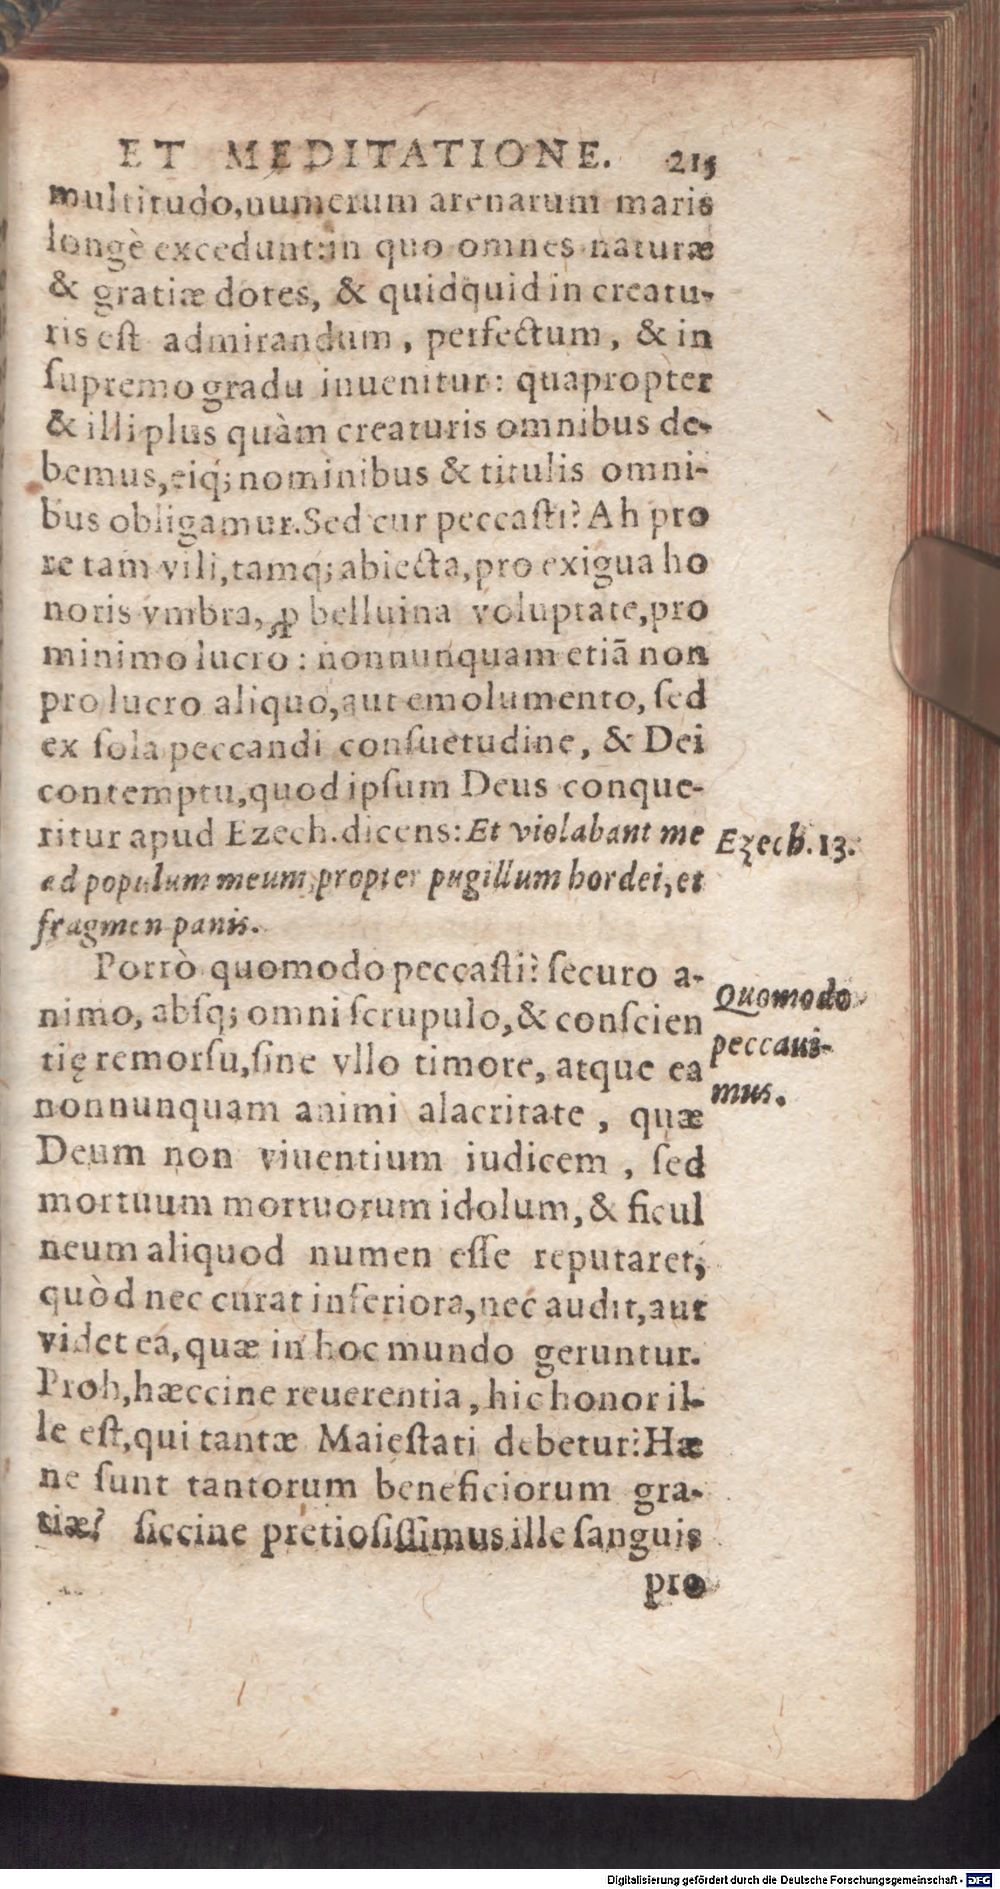 ET MEDITATIONE. 215
multitudo,numerum arenarum maris
longè excedunt:in quo omnes naturæ
& gratiæ dotes, & quidquid in creatu-
ris eſt admirandum, perfectum, & in
ſupremo gradu inuenitur: quapropter
& illi plus quàm creaturis omnibus de-
bemus,eiq; nominibus & titulis omni-
bus obligamur.Sed cur peccaſti? Ah pro
re tam vili,tamq; abiecta,pro exigua ho
noris vmbra, ꝓ belluina voluptate,pro
minimo lucro: nonnunquam etiã non
pro lucro aliquo,aut emolumento, ſed
ex ſola peccandi conſuetudine, & Dei
contemptu,quod ipſum Deus conque-
ritur apud Ezech.dicens: Et violabant me
ad populum meum,propter pugillum hordei,et
fragmen panis.
Ezech. 13.
Porrò quomodo peccaſti? ſecuro a-
nimo, abſq; omni ſcrupulo,& conſcien
tię remorſu,ſine vllo timore, atque ea
nonnunquam animi alacritate, quæ
Deum non viuentium iudicem, ſed
mortuum mortuorum idolum,& ficul
neum aliquod numen eſſe reputaret,
quòd nec curat inferiora,nec audit,aut
videt ea,quæ in hoc mundo geruntur.
Proh,hæccine reuerentia, hic honor il-
le eſt,qui tantæ Maieſtati debetur? Hæ
ne ſunt tantorum beneficiorum gra-
tiæ? ſiccine pretioſiſſimus ille ſanguis
pro
Quomodo
peccaui-
mus.
Digitalisierung gefördert durch die Deutsche Forschungsgemeinschaft - DFG